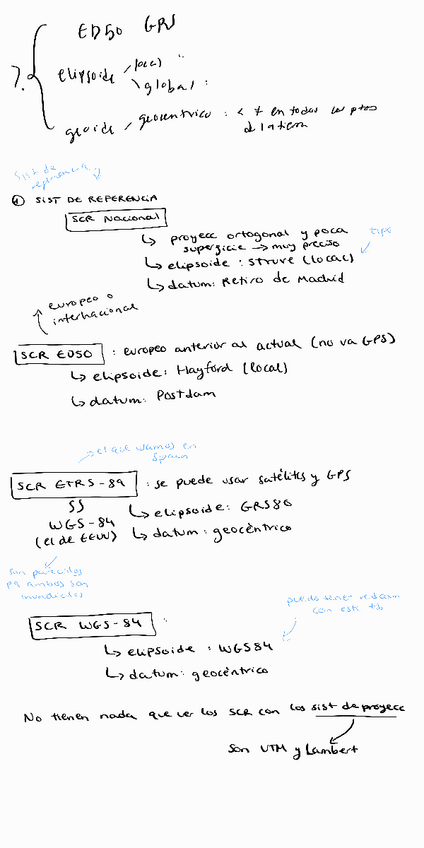 ED50 GRS
?.
elipsoide / local
\ global :
geoide / geocentrico : < + en todos los ptos
de la tierra
Sist de
referencia
① SIST DE REFERENCIA
SCR Nacional
↳ proyecc ortogonal y poca
superficie → muy preciso
tipo
↳ elipsoide : Struve (local)
↳ datum: Retiro de Madrid
europeo o
internacional
SCR ED50 : europeo anterior al actual (no va GPS)
↳ elipsoide: Hayford (local)
↳ datum: Postdam
el que usamos en
Spain
SCR ETRS-89 : se puede usar satélites y GPS
SS
↳ elipsoide: GRS80
WGS-84
(el de EEUU)
↳ datum: geocéntrico
Son parecidos
pq ambos son
mundiales
puede tener relación
con este
SCR WGS-84 :
↳ elipsoide : WGS84
↳ datum: geocéntrico
No tienen nada que ver los SCR con los sist de proyecc
Son UTM y Lambert